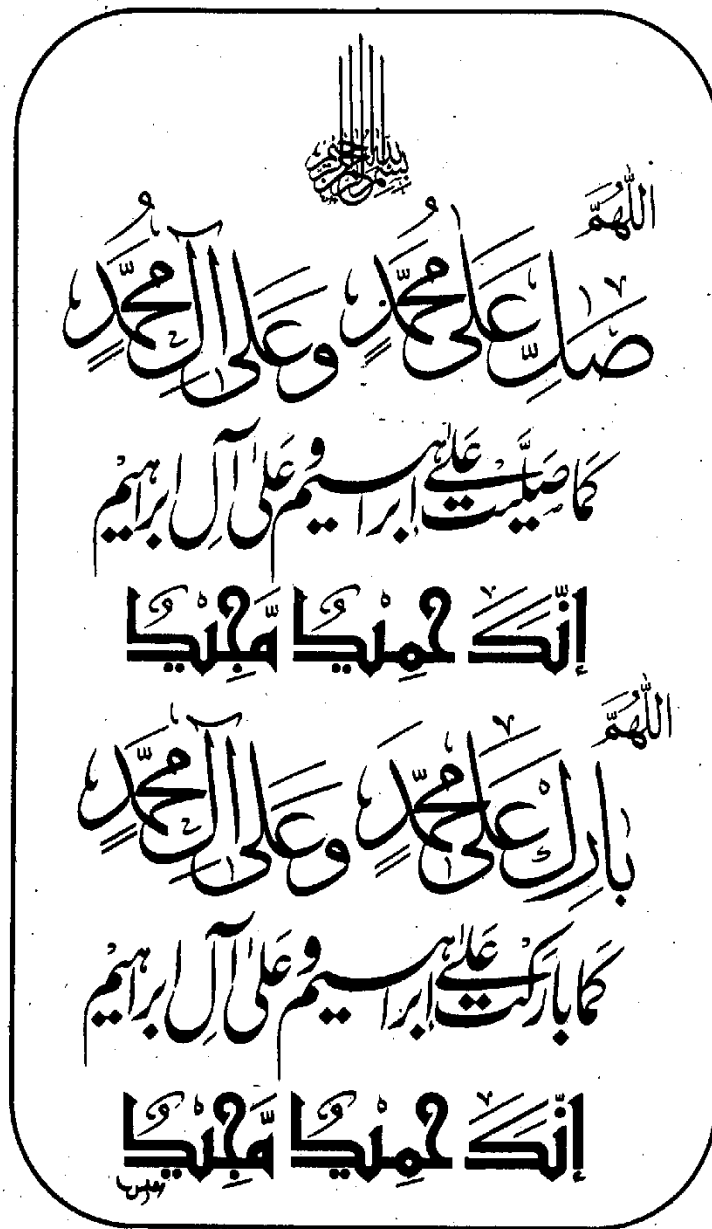 بسم الله الرحمن الرحيم
اللّٰهُمَّ
صَلِّ عَلٰی مُحَمَّدٍ وَعَلٰی آلِ مُحَمَّدٍ
کَمَا صَلَّیْتَ عَلٰی اِبْرَاهِیْمَ وَعَلٰی آلِ اِبْرَاهِیْمَ
إِنَّكَ حَمِيْدٌ مَّجِيْدٌ
اللّٰهُمَّ
بَارِكْ عَلٰی مُحَمَّدٍ وَعَلٰی آلِ مُحَمَّدٍ
کَمَا بَارَکْتَ عَلٰی اِبْرَاهِیْمَ وَعَلٰی آلِ اِبْرَاهِیْمَ
إِنَّكَ حَمِيْدٌ مَّجِيْدٌ